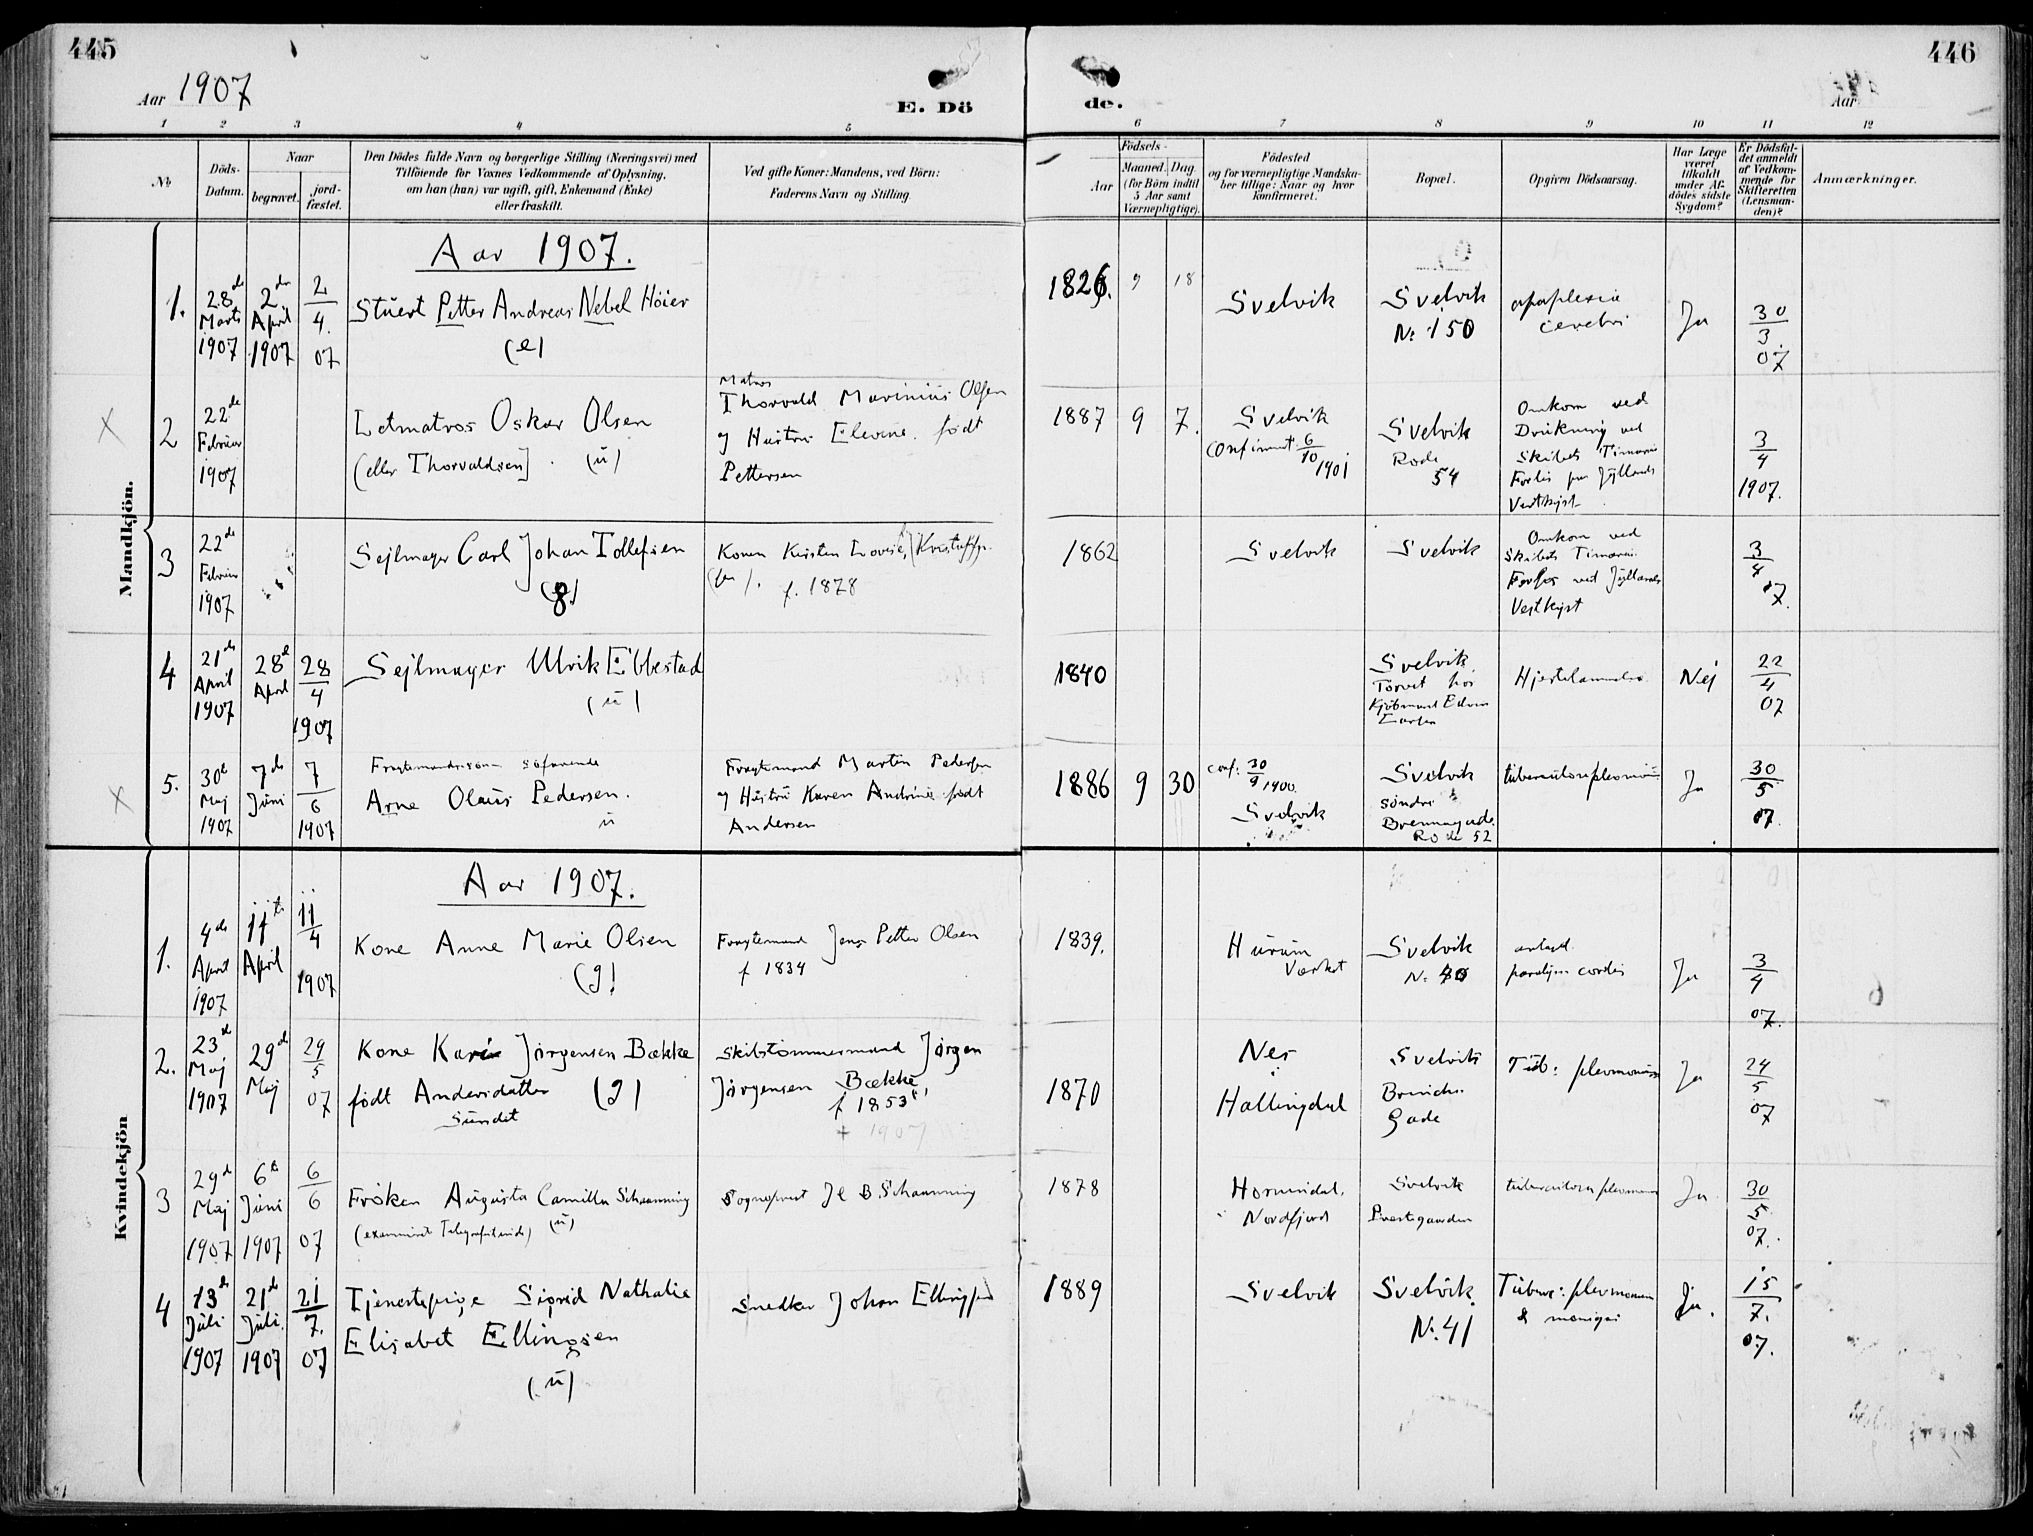 445
446
Aar 1907
E. Dö
de.
Aar
1 2 3 4 5 6 7 8 9 10 11 12
№
Döds-
Datum.
Naar
begravet.
jord-
fæstet.
Den Dödes fulde Navn og borgerlige Stilling (Næringsvei) med
Tilföiende for Voxnes Vedkommende af Oplysning,
om han (hun) var ugift, gift, Enkemand (Enke)
eller fraskilt.
Ved gifte Koner: Mandens, ved Börn:
Faderens Navn og Stilling.
Födsels-
Aar
Maaned. Dag.
(for Börn indtil
5 Aar samt
Værnepligtige).
Födested
og for værnepligtige Mandska-
ber tillige: Naar og hvor
konfirmeret.
Bopæl.
Opgiven Dödsaarsag.
Har Læge
været
tilkaldt
under Af-
dödes sidste
Sygdom?
Er Dödsfal-
det anmeldt
af Vedkom-
mende for
Skifteretten
(Lensman-
den)?
Anmærkninger.
Mandkjön.
Aar 1907.
1.
28de
Marts
1907
2den
April
1907
2
4.
07
Stuert Petter Andreas Nebel Höier
(e)
1826. 9 18
Svelvik
Svelvik
No 150
apoplexia
cerebri
Ja
30
3.
07
X
2
22de
Februar
1907
Letmatros Oskar Olsen
(eller Thorvaldsen) (ü)
Matros
Thorvald Marinius Olsen
og Hustru Elevine født
Pettersen
1887 9 7.
Svelvik
Confirmert 6/10
1901
Svelvik
Rode
54
Omkom ved
Drukning ved
Skibets
Forlis paa Jyllands
Vestkyst
3
4
1907.
3
22de
Februar
1907
Sejlmager Carl Johan Tollefsen
(g)
Konen Kirsten Lovise,
f. 1878
1862
Svelvik
Svelvik
Omkom ved
Skibets
Forlis ved Jyllands
Vestkyst
3
4
07.
4
21de
April
1907
28de
April
28
4
1907
Sejlmager Ulrik Ebbestad
(ü)
1840
Svelvik
Torvet hos
Kjøbmand Edvin
Larsen
Hjertelammelse
Nej
22
4
07
X
5.
30te
Maj
1907
7de
Juni
7
6
1907
Fragtemandssøn søfarende
Arne Olaus Pedersen.
ü
Fragtemand Martin Pedersen
og Hustru Karen Andrine født
Andersen
1886 9 30
Conf: 30/9 1900.
Svelvik
Svelvik
søndre
Brennagade
Rode 52
tuberculosis pleumonum
Ja
30
5
07.
Kvindekjön
Aar 1907.
1.
4de
April
1907
11te
April
11
4
1907
Kone Anne Marie Olsen
(g)
Fragtemand Jens Petter Olsen
f 1834
1839.
Hurum
Værket
Svelvik
No 40
paralysis cordis
Ja
3
4
07.
2.
23de
Maj
1907
29de
Maj
29
5
07
Kone Kari Jørgensen Bække
født Andersdatter (g)
Sundet
Skibstømmermand Jørgen
Jørgensen Bække,
f 1853
+ 1907
1870
Nes
Hallingdal
Svelvik
Gade
Tub: pleumonum
Ja
24
5
07
3
29de
Maj
1907
6te
Juni
1907
6
6
07
Frøken Augusta Camilla Schanning
(examineret Telegrafistinde) (ü)
Sogneprest B. Schanning
1878
Hornindal,
Nordfjord
Svelvik
Prestegaarden
tuberculosis pleumonum
Ja
30
5
07.
4
13de
Juli
1907
21de
Juli
1907
21
7.
07
Tjenestepige Sigrid Nathalie
Elisabet Ellingsen
(ü)
Snedker Johan Ellingsen
1889
Svelvik
Svelvik
No. 41
Tuberc: pleumonum
&
Ja.
15
7.
07.